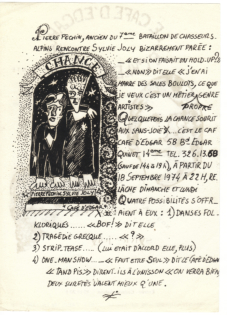 PIERRE PECHIN, ANCIEN DU 7ème BATAILLON DE CHASSEURS
ALPINS RENCONTRE SYLVIE JOLY BIZARREMENT PARÉE :
« ET SI ON FAISAIT UN HOLD-UP ? »
« NON » DIT ELLE « J'EN AI
MARRE DES SALES BOULOTS, CE QUE
JE VEUX C'EST UN MÉTIER GENRE
ARTISTES » PROPRE
QUELQUEFOIS LA CHANCE SOURIT
AUX SANS-JOIE ... C'EST LE CAF
CAFÉ D'EDGAR 58 Bd EDGAR
QUINET 14ème TEL. 326.13.68
À PARTIR DU
18 SEPTEMBRE 1974 À 22H, RE-
LÂCHE DIMANCHE ET LUNDI
QUATRE POSSIBILITÉS S'OFFR-
AIENT À EUX : 1) DANSES FOL-
KLORIQUES ...... « BOF ! » DIT ELLE
2) TRAGÉDIE GRECQUE ...... « ? »
3) STRIP-TEASE .... (LUI ÉTAIT D'ACCORD ELLE, PLUS)
4) ONE-MAN-SHOW ... « FAUT ÊTRE SEUL » DIT LE CAFÉ D'EDGAR
« TANT PIS » DIRENT-ILS À L'UNISSON « ON VERRA BIEN,
DEUX SURETÉS VALENT MIEUX QU'UNE.
CHANCE